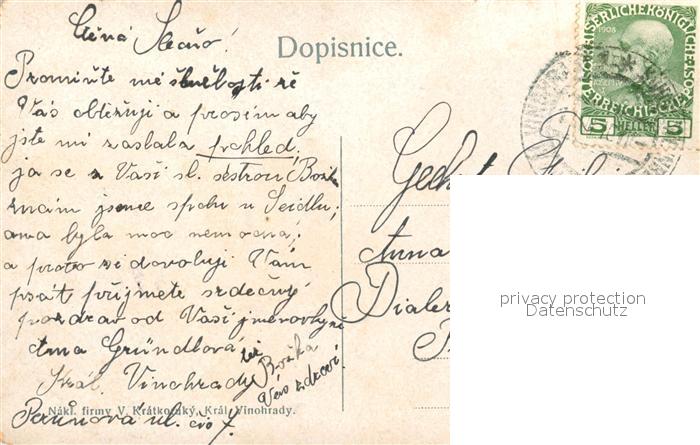 Ctěná Slečno!
Dopisnice.
Promiňte mé službosti že
Vás obtěžuji a prosím aby
jste mi zaslala pohled,
já se z Vaší sl. sestrou Bož
znám jsme spolu u Seidlu,
ona byla moc nemocna,
a proto si dovoluji Vám
psát přijmete srdečný
pozdrav od Vaší jmenovkyně
Anna Gründlová
též Božka
Vás zdraví.
Král. Vinohrady
Nákl. firmy V. Krátkoruký, Král. Vinohrady.
Perunova ul. čís 7.
Anna
KAISERLICHE KÖNIGLICHE ÖSTERREICHISCHE
1908
5 HELLER 5
privacy protection
Datenschutz